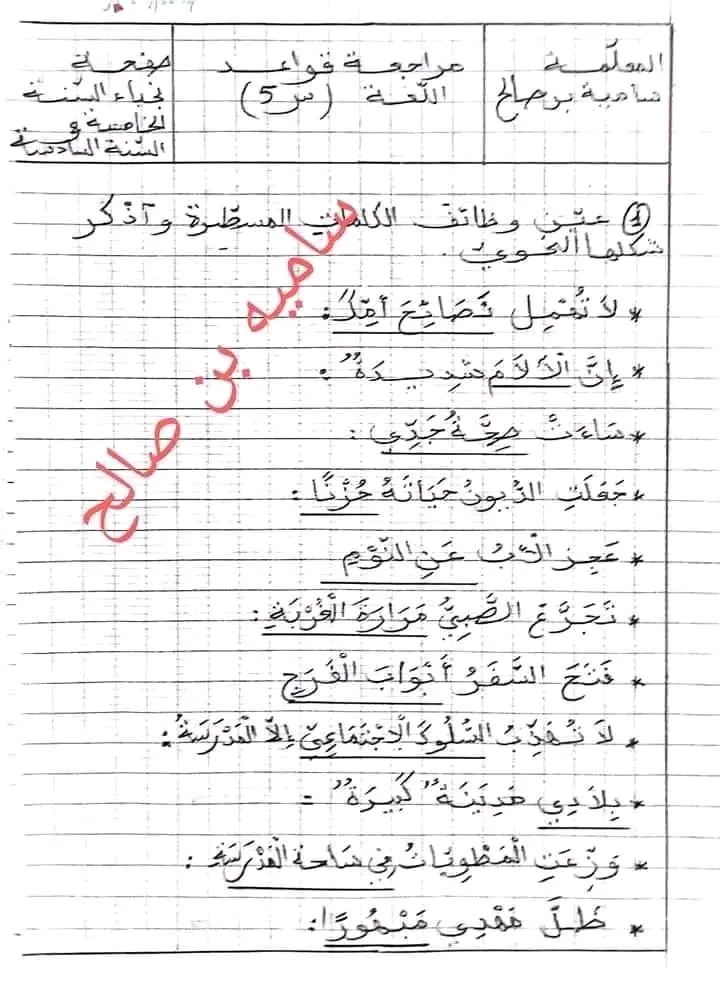 المعلّمة
سامية بن صالح
مراجعة قواعد
اللّغة (س5)
صفحة
نجباء السّنة
الخامسة و
السّنة السّادسة
① عيّن وظائف الكلمات المسطّرة وآذكر
شكلها النّحويّ.
* لاَ تُهْمِل نَصَائِحَ أمِّكَ:
* إِنَّ الْآلاَمَ شَدِيدَةٌ:
* سَاءَتْ صِحَّةُ جَدِّي:
* جَعَلَتِ الدُّيُونُ حَيَاتَهُ حُزْنًا:
* عَجِزَ الْأَبُ عَنِ النَّوْمِ
* تَجَرَّعَ الصَّبِيُّ مَرَارَةَ الْغُرْبَةِ:
* فَتَحَ السَّفَرُ أَبْوَابَ الْفَرَجِ
* لاَ تُهَذِّبُ السُّلُوكَ الْاِجْتِمَاعِيَّ إِلاَّ الْمَدْرَسَةُ:
* بِلاَدِي مَدِينَةٌ كَبِيرَةٌ =
* وُزِّعَتِ الْمَطْوِيَّاتُ فِي سَاحَةِ الْمَدْرَسَةِ:
* ظَلَّ مَهْدِي مَبْهُورًا:
سامية بن صالح